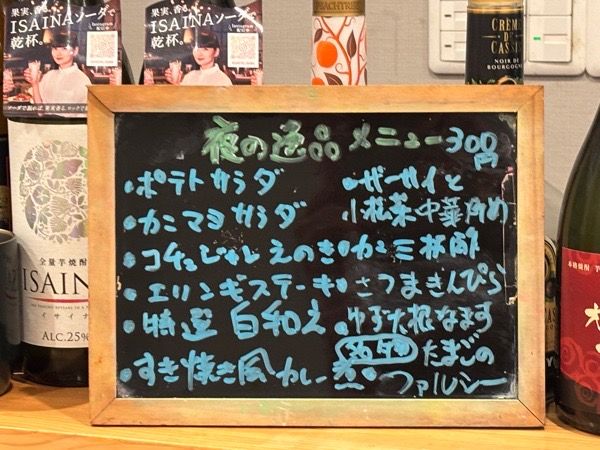 果実、香る。
ISAINAソーダで
乾杯。
Instagram
果実、香る。
ISAINAソーダで
乾杯。
Instagram
PEACHTREE
CRÈME
DE
CASSIS
NOIR DE
BOURGOGNE
夜の逸品メニュー300円
・ポテトサラダ
・カニマヨサラダ
・コチュジャンえのき
・エリンギステーキ
・特選白和え
・すき焼き風カレー煮
・ザーサイと
小松菜中華炒め
・カニ三杯酢
・さつまきんぴら
・ゆず大根なます
たまごの
ファルシー
全量芋焼酎
ISAINA
イサイナ
ALC.25%
本格焼酎